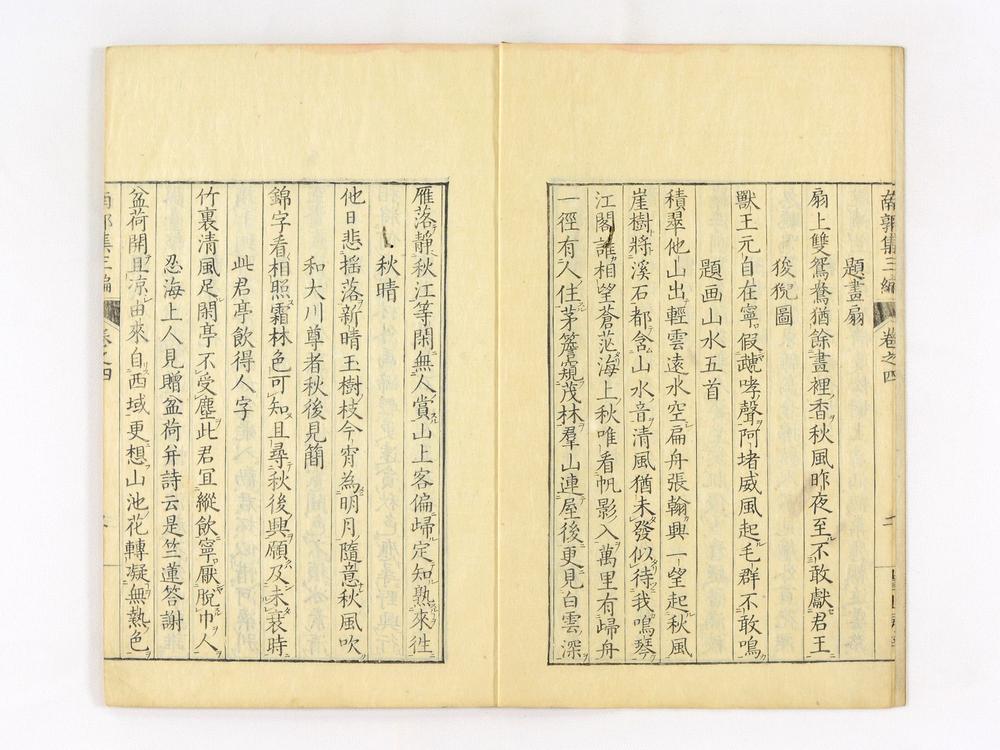 南郭集三編 卷之四
題畫扇
扇上雙鴛鴦猶餘畫裡香秋風昨夜至不敢獻君王
狻猊圖
獸王元自在寧假虣哮聲阿堵威風起毛群不敢鳴
題画山水五首
積翠他山出輕雲遠水空扁舟張翰興一望起秋風
崖樹將溪石都含山水音清風猶未發似待我鳴琴
江閣誰相望蒼茫海上秋唯看帆影入萬里有歸舟
一徑有人住茅簷窺茂林羣山連屋後更見白雲深
雁落靜秋江等閑無人賞山上客偏歸定知熟來徃
秋晴
他日悲搖落新晴玉樹枝今宵為明月隨意秋風吹
和大川尊者秋後見簡
錦字看相照霜林色可知且尋秋後興願及未衰時
此君亭飲得人字
竹裏清風足閑亭不受塵此君宜縱飲寧厭脫巾人
忍海上人見贈盆荷并詩云是竺蓮答謝
盆荷開且涼由來自西域更想山池花轉凝無熱色
南郭集三編 卷之四